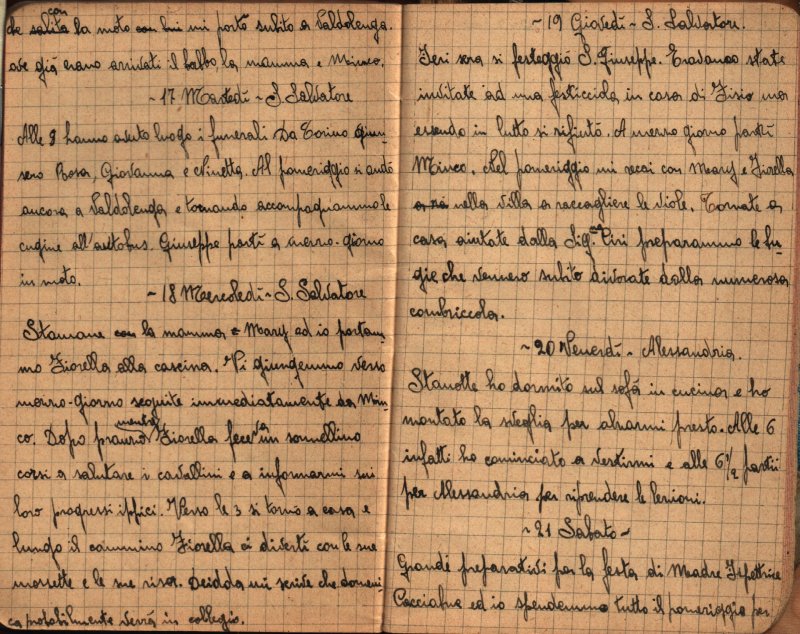 che salita con la moto con lui mi portò subito a Valdolenga.
ove già erano arrivati il babbo, la mamma e Minco.
~ 17 Martedì ~ S. Salvatore
Alle 9 hanno avuto luogo i funerali Da Torino giun-
sero Rosa, Giovanna e Ninetta. Al pomeriggio si andò
ancora a Valdolenga e tornando accompagnammo le
cugine all'autobus. Giuseppe partì a mezzo-giorno
in moto.
~ 18 Mercoledì ~ S. Salvatore
Stamane con la mamma e Mary ed io portam-
mo Fiorella alla cascina. Vi giungemmo verso
mezzo-giorno seguite immediatamente da Min-
co. Dopo pranzo mentre Fiorella faceva un sonnellino
corsi a salutare i cavallini e a informarmi sui
loro progressi ippici. Verso le 3 si tornò a casa e
lungo il cammino Fiorella ci divertì con le sue
mossette e le sue risa. Deidda mi scrive che domeni-
ca probabilmente verrà in collegio.
~ 19 Giovedì ~ S. Salvatore.
Ieri sera si festeggiò S. Giuseppe. Eravamo state
invitate ad una festicciola in casa di Fisio ma
essendo in lutto si rifiutò. A mezzo giorno partì
Minco. Nel pomeriggio mi recai con Mary e Fiorella
nella villa a raccogliere le viole. Tornate a
casa aiutate dalla Sig.ra Piri preparammo le bu-
gie, che vennero subito divorate dalla numerosa
combriccola.
~ 20 Venerdì ~ Alessandria.
Stanotte ho dormito sul sofà in cucina e ho
montato la sveglia per alzarmi presto. Alle 6
infatti ho cominciato a vestirmi e alle 6 1/2 partii
per Alessandria per riprendere le lezioni.
~ 21 Sabato ~
Grandi preparativi per la festa di Madre Ispettrice
ed io spendemmo tutto il pomeriggio per